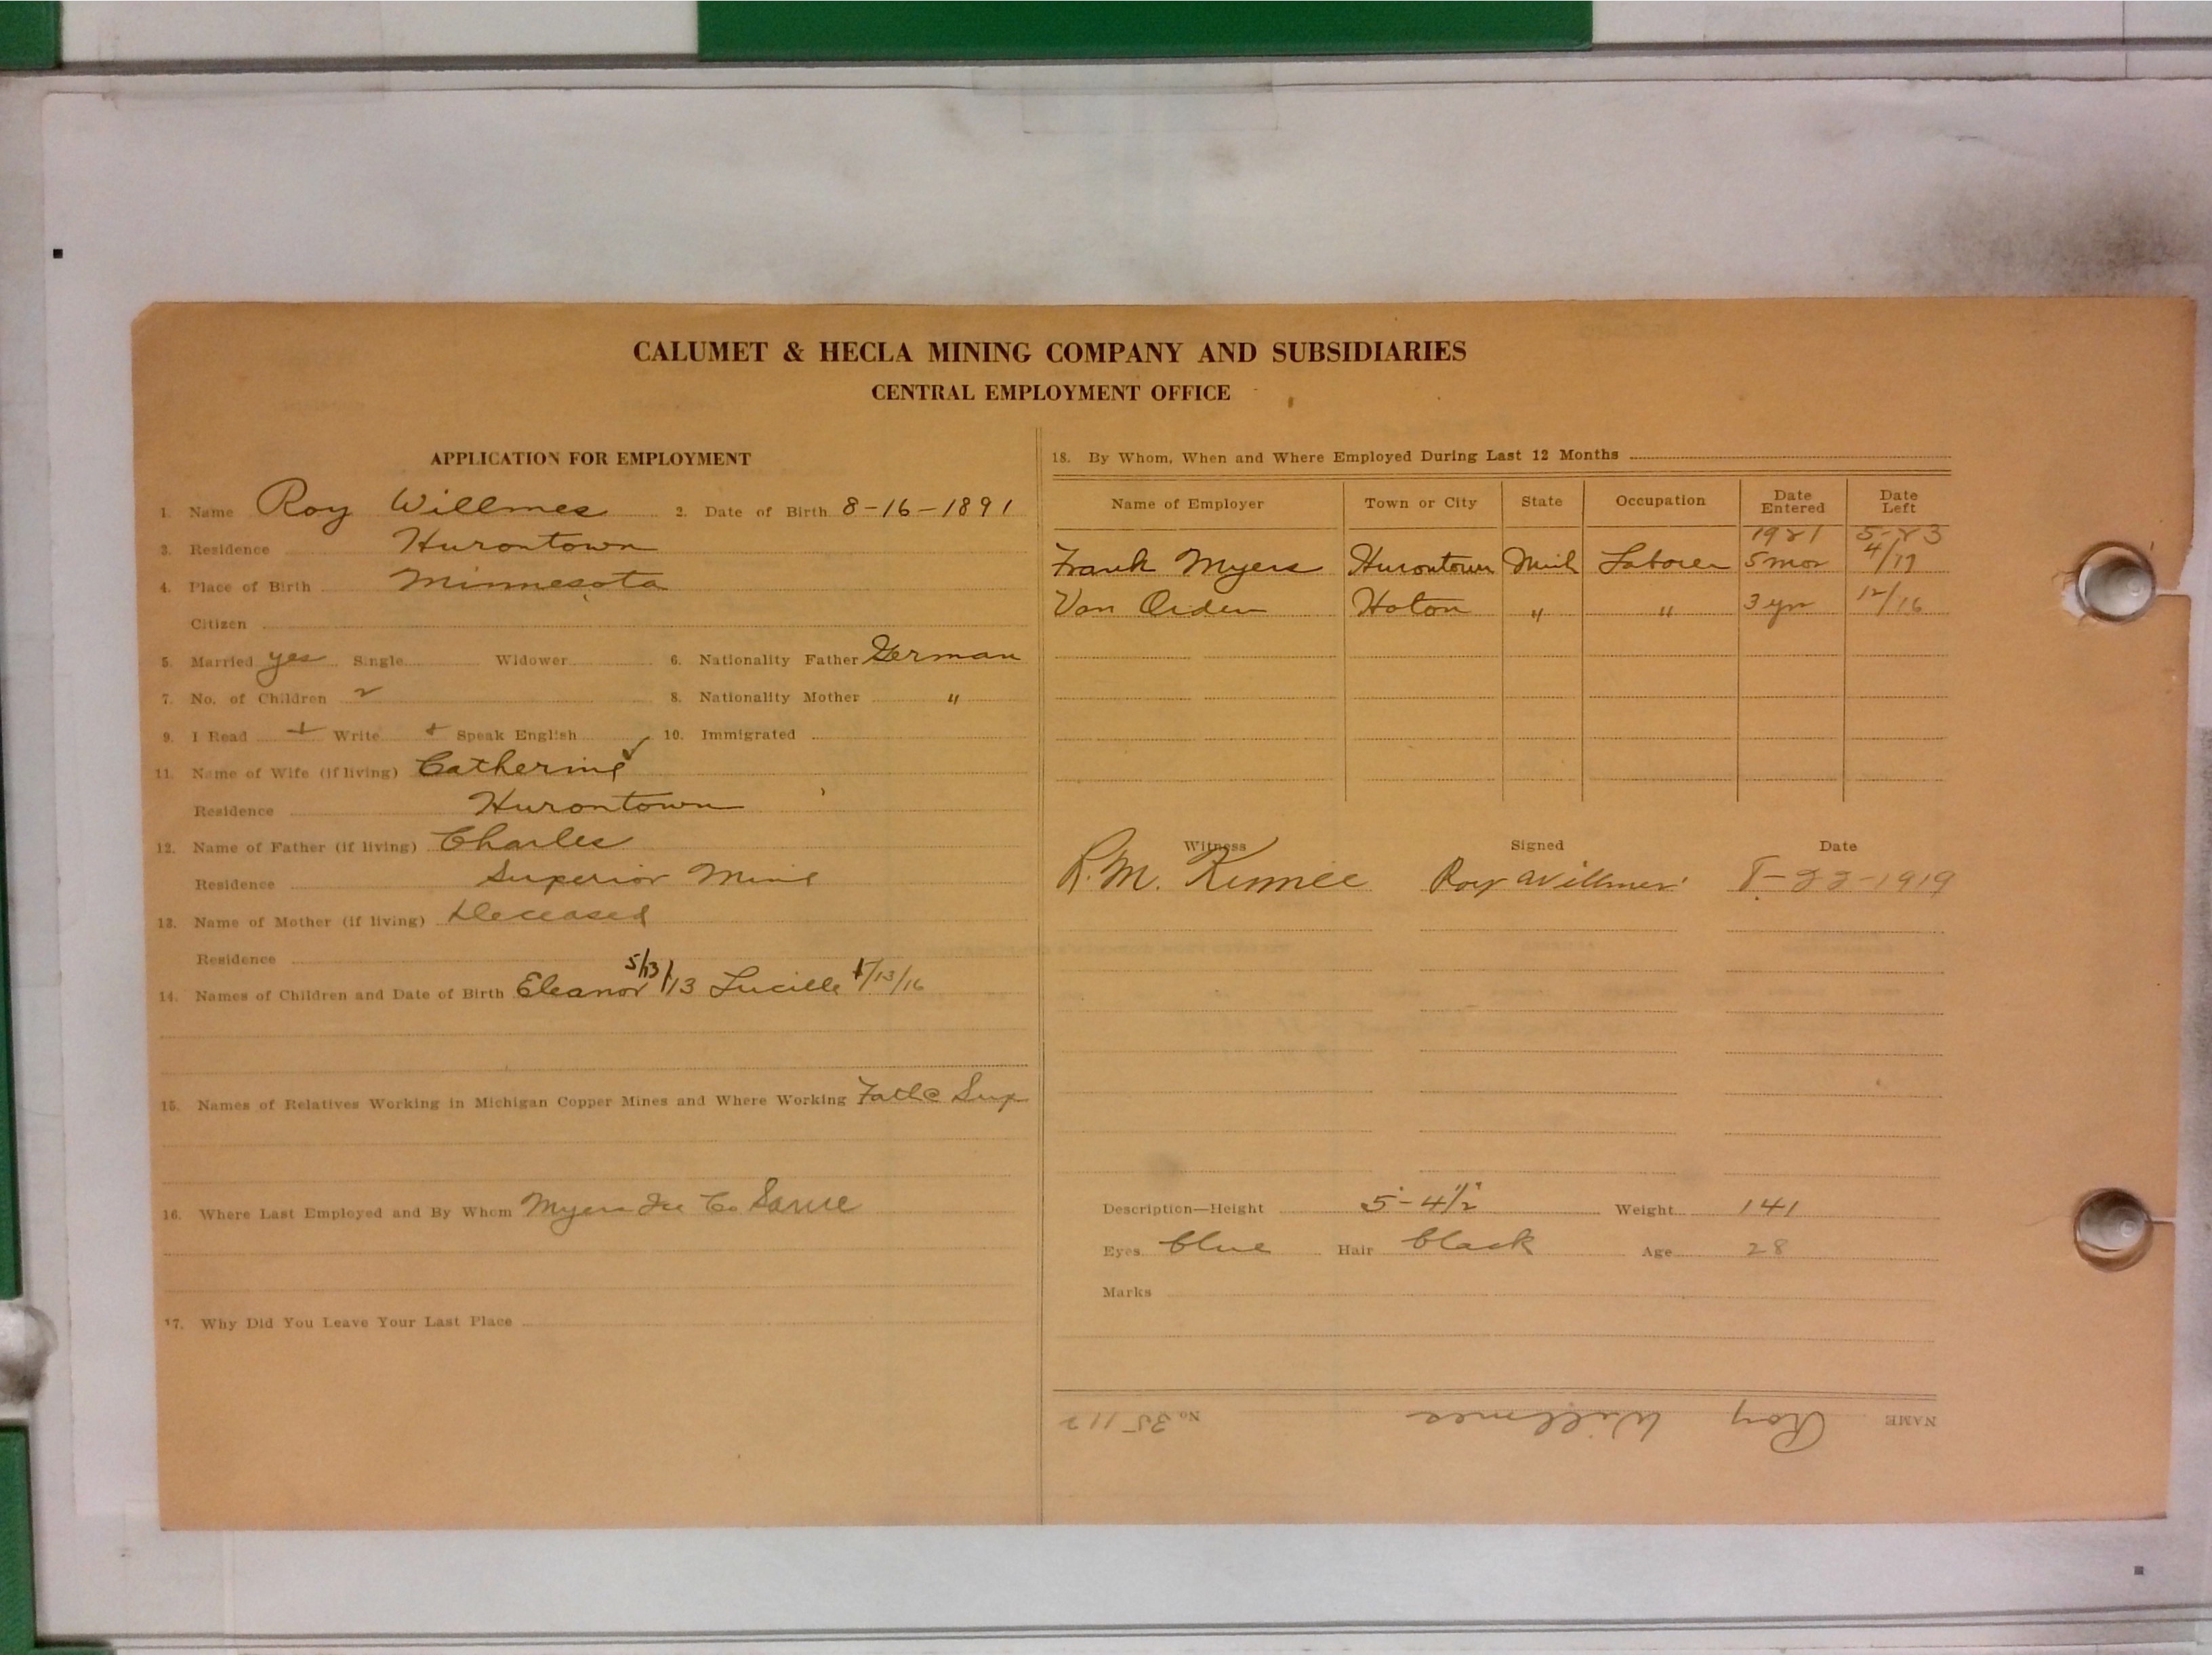 CALUMET & HECLA MINING COMPANY AND SUBSIDIARIES
CENTRAL EMPLOYMENT OFFICE
APPLICATION FOR EMPLOYMENT
1. Name Roy Willmes 2. Date of Birth 8-16-1891
3. Residence Hurontown
4. Place of Birth Minnesota
Citizen
5. Married yes Single Widower 6. Nationality Father German
7. No. of Children 2 8. Nationality Mother "
9. I Read + Write + Speak English 10. Immigrated
11. Name of Wife (if living) Catherine
Residence Hurontown
12. Name of Father (if living) Charles
Residence Superior Mine
13. Name of Mother (if living) Deceased
Residence
14. Names of Children and Date of Birth Eleanor 5/13/13 Lucille /13/16
15. Names of Relatives Working in Michigan Copper Mines and Where Working Sup
16. Where Last Employed and By Whom Myers Co Same
17. Why Did You Leave Your Last Place
18. By Whom, When and Where Employed During Last 12 Months
Name of Employer Town or City State Occupation Date Entered Date Left
1921 5-23
Frank Myers Hurontown Mich Laborer 5 mos 4/17
Van Orden Hoton " " 3 yr 12/16
Witness Signed Date
R. M. Roy Willmes 8-22-1919
Description—Height 5-4 1/2" Weight 141
Eyes blue Hair black Age 28
Marks
NAME Roy Willmes No 35112